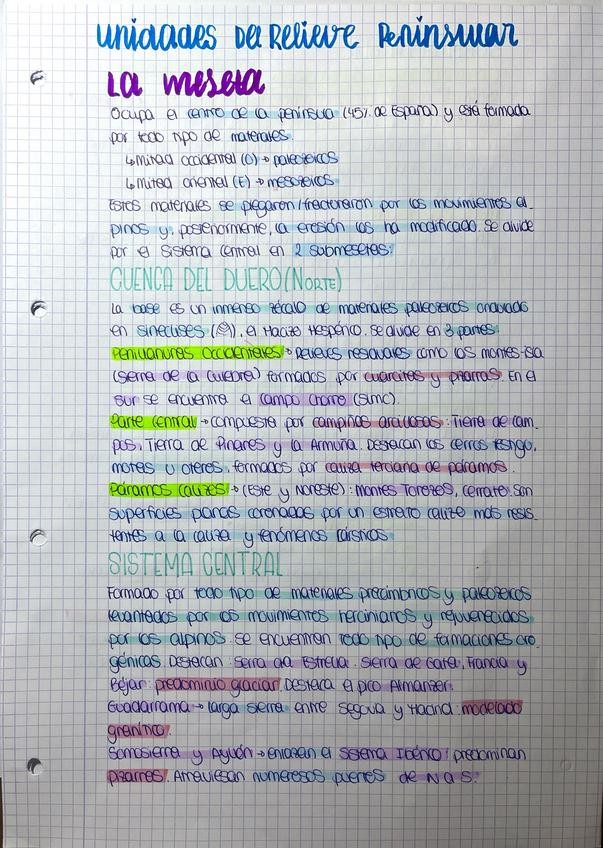 Unidades Del Relieve Peninsular
La meseta
Ocupa el centro de la península (45% de España) y está formada
por todo tipo de materiales.
↳ Mitad occidental (O) → paleozoicos
↳ Mitad oriental (E) → mesozoicos
Estos materiales se plegaron/fracturaron por los movimientos al-
pinos y, posteriormente, la erosión los ha modificado. Se divide
por el Sistema Central en 2 submesetas:
CUENCA DEL DUERO (NORTE)
La base es un inmenso zócalo de materiales paleozoicos ondulado
en sineclises, el Macizo Hespérico. Se divide en 3 partes:
Penillanuras occidentales → Relieves residuales como los montes-isla
(Sierra de la Culebra) formados por cuarcitas y pizarras. En el
sur se encuentra el Campo Charro (Slmc).
Parte central → compuesta por campiñas arcillosas: Tierra de Cam-
pos, Tierra de Pinares y la Armuña. Destacan los cerros testigo,
motas u oteros, formados por caliza terciaria de páramos.
Páramos calizos → (Este y Noreste): Montes Torozos, Cerrato. Son
superficies planas coronadas por un estrato calizo más resis-
tentes a la caliza y fenómenos cársticos.
SISTEMA CENTRAL
Formado por todo tipo de materiales precámbricos y paleozoicos
levantados por los movimientos hercinianos y rejuvenecidos
por los alpinos. Se encuentran todo tipo de formaciones oro-
génicas. Destacan: Serra da Estrella. Sierra de Gata, Francia y
Béjar: predominio glaciar. Destaca el pico Almanzor.
Guadarrama → larga sierra entre Segovia y Madrid: modelado
granítico.
Somosierra y Ayllón → enlazan el Sistema Ibérico: predominan
pizarras. Atraviesan numerosos puertos de N a S.